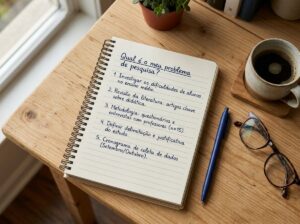 Qual é o meu problema
de pesquisa?
1. Investigar as dificuldades de alunos
no ensino médio.
2. Revisão da literatura: artigos chave
sobre didática.
3. Metodologia: questionários e
entrevistas com professores (n=15).
4. Definir delimitação e justificativa
do estudo.
5. Cronograma de coleta de dados
(Setembro/Outubro).